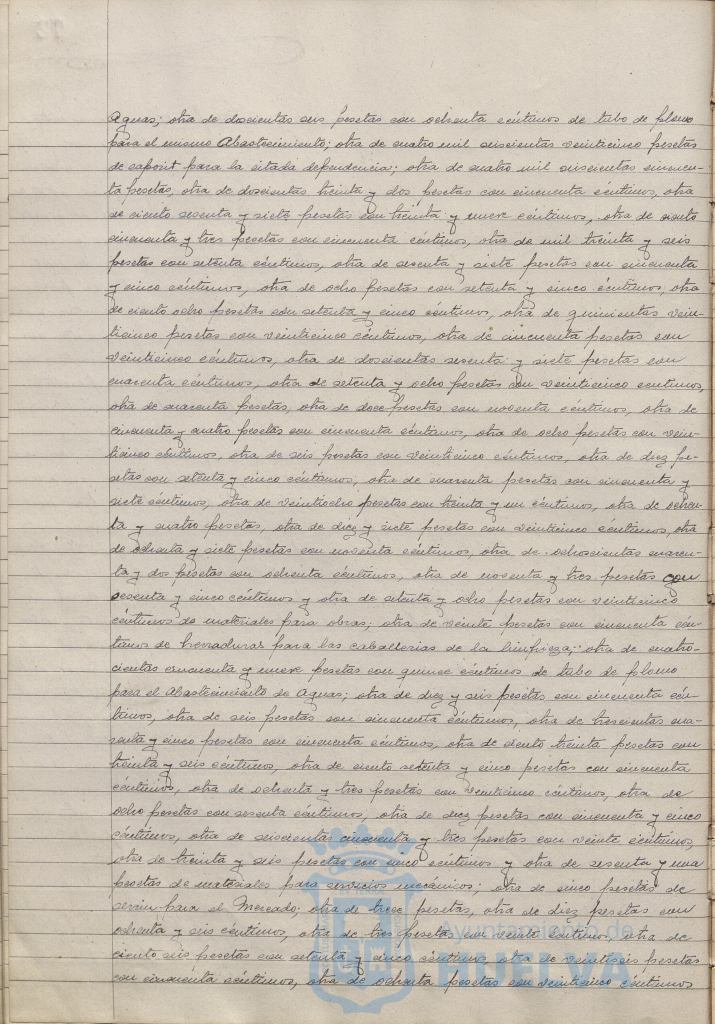 Aguas; otra de doscientas seis pesetas con ochenta céntimos de tubo de plomo
para el mismo Abastecimiento; otra de cuatro mil seiscientas veinticinco pesetas
de para la citada dependencia; otra de cuatro mil seiscientas cincuen-
ta pesetas, otra de doscientas treinta y dos pesetas con cincuenta céntimos, otra
de ciento sesenta y siete pesetas con treinta y nueve céntimos, otra de ciento
cincuenta y tres pesetas con cincuenta céntimos, otra de mil treinta y seis
pesetas con setenta céntimos, otra de sesenta y siete pesetas con cincuenta
y cinco céntimos, otra de ocho pesetas con setenta y cinco céntimos, otra
de ciento ocho pesetas con setenta y cinco céntimos, otra de quinientas vein-
ticinco pesetas con veinticinco céntimos, otra de cincuenta pesetas con
veinticinco céntimos, otra de doscientas sesenta y siete pesetas con
cuarenta céntimos, otra de setenta y ocho pesetas con veinticinco céntimos,
otra de cuarenta pesetas, otra de doce pesetas con noventa céntimos, otra de
cincuenta y cuatro pesetas con cincuenta céntimos, otra de ocho pesetas con vein-
ticinco céntimos, otra de seis pesetas con veinticinco céntimos, otra de diez pe-
setas con setenta y cinco céntimos, otra de cuarenta pesetas con cincuenta y
siete céntimos, otra de veintiocho pesetas con treinta y un céntimos, otra de ochen-
ta y cuatro pesetas, otra de diez y siete pesetas con veinticinco céntimos, otra
de ochenta y siete pesetas con noventa céntimos, otra de ochocientas cuaren-
ta y dos pesetas con ochenta céntimos, otra de noventa y tres pesetas con
sesenta y cinco céntimos y otra de setenta y ocho pesetas con veinticinco
céntimos de materiales para obras; otra de veinte pesetas con cincuenta cén-
timos de herraduras para las caballerias de la limpieza; otra de cuatro-
cientas cincuenta y nueve pesetas con quince céntimos de tubo de plomo
para el Abastecimiento de Aguas; otra de diez y seis pesetas con cincuenta cén-
timos, otra de seis pesetas con cincuenta céntimos, otra de trescientas cua-
renta y cinco pesetas con cincuenta céntimos, otra de ciento treinta pesetas con
treinta y seis céntimos, otra de ciento setenta y cinco pesetas con cincuenta
céntimos, otra de ochenta y tres pesetas con veinticinco céntimos, otra de
ocho pesetas con sesenta céntimos, otra de diez pesetas con cincuenta y cinco
céntimos, otra de seiscientas cincuenta y tres pesetas con veinte céntimos,
otra de treinta y seis pesetas con cinco céntimos y otra de sesenta y una
pesetas de materiales para servicios mecánicos; otra de cinco pesetas de
para el Mercado; otra de trece pesetas, otra de diez pesetas con
ochenta y seis céntimos, otra de tres pesetas con veinte céntimos, otra de
ciento seis pesetas con setenta y cinco céntimos, otra de veintiseis pesetas
con cincuenta céntimos, otra de ochenta pesetas con veinticinco céntimos
Ayuntamiento de
HUELVA